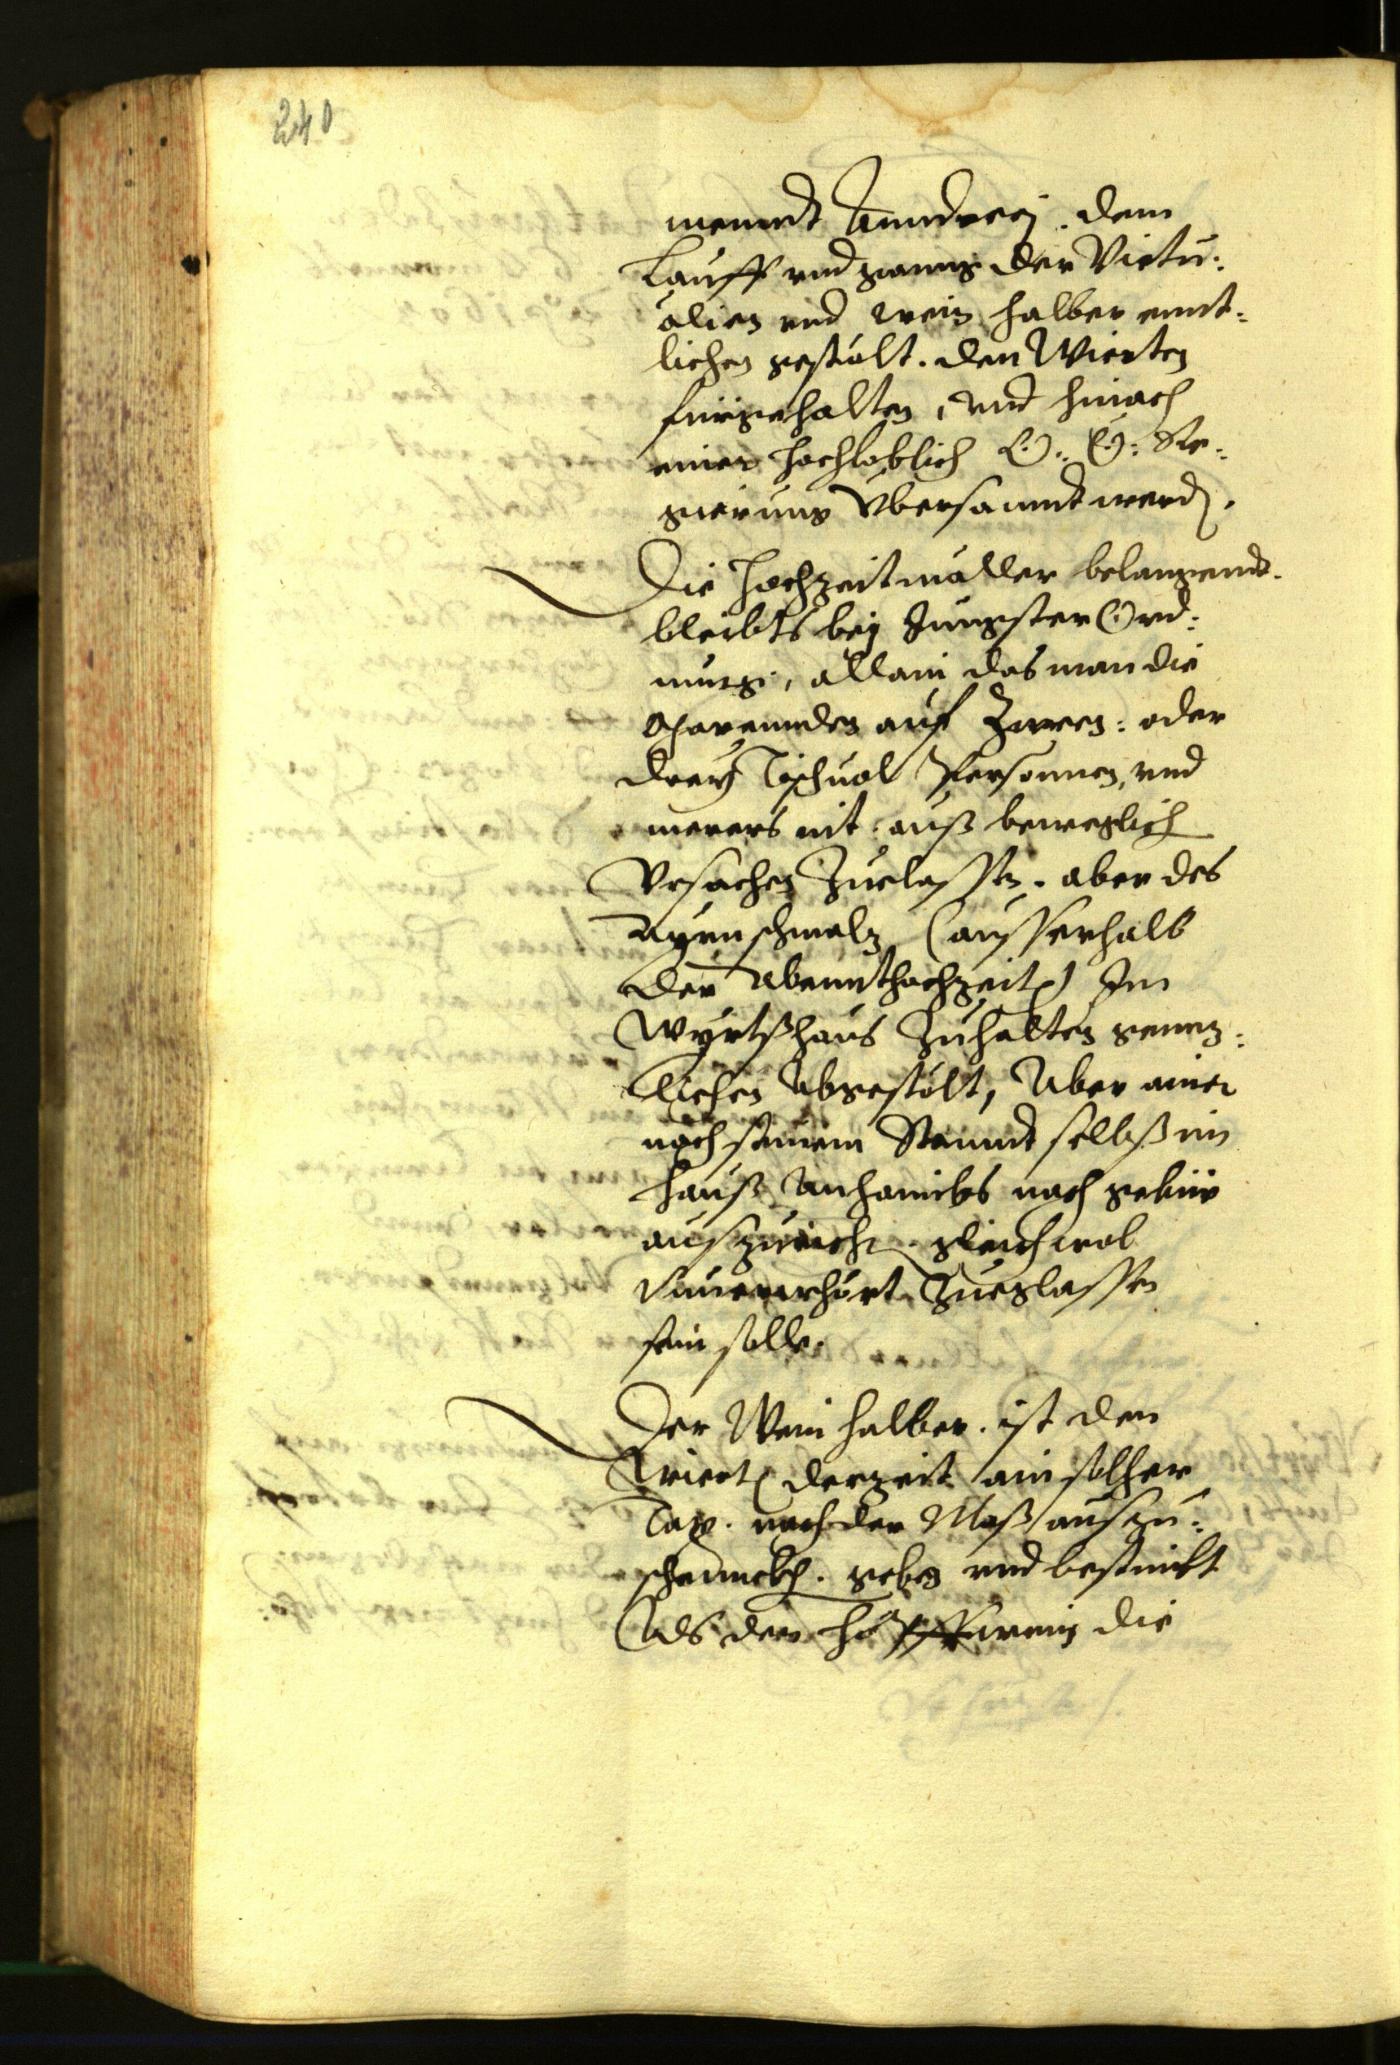 240
mendt Anndreej. dem
Lauff und ganng der Victu:
alien und wein halber ennt:
lichen gestält. den Wierten
fürgehalten, und hinach
einer hochloblich O: Ö: Re:
gierung Ubersanndt werd.
Die Hochzeitmäller belangendt.
bleibts bey Jüngster Ord:
nung, allain das man die
auf Zween: oder
dreÿ Tischvol Personnen, und
merers nit auß beweglich
Ursachen Zuelassen. aber des
Ayrnschmalz (ausserhalb
der Abennthochzeiten) Im
Wÿrtßhaus Zuhalten gennz:
lichen Abgestölt, Aber ainer
nach seinem Stanndt selbß im
Hauß Anhaimbs nach gebür
auszuricht. gleichwol
Zuegelassen
sein solle.
Der Wein halber. ist den
Wierten derzeit ain solher
Tax. nach der Maß auszu:
schennckh. geben und bestimbt
Als der Höpfwein die